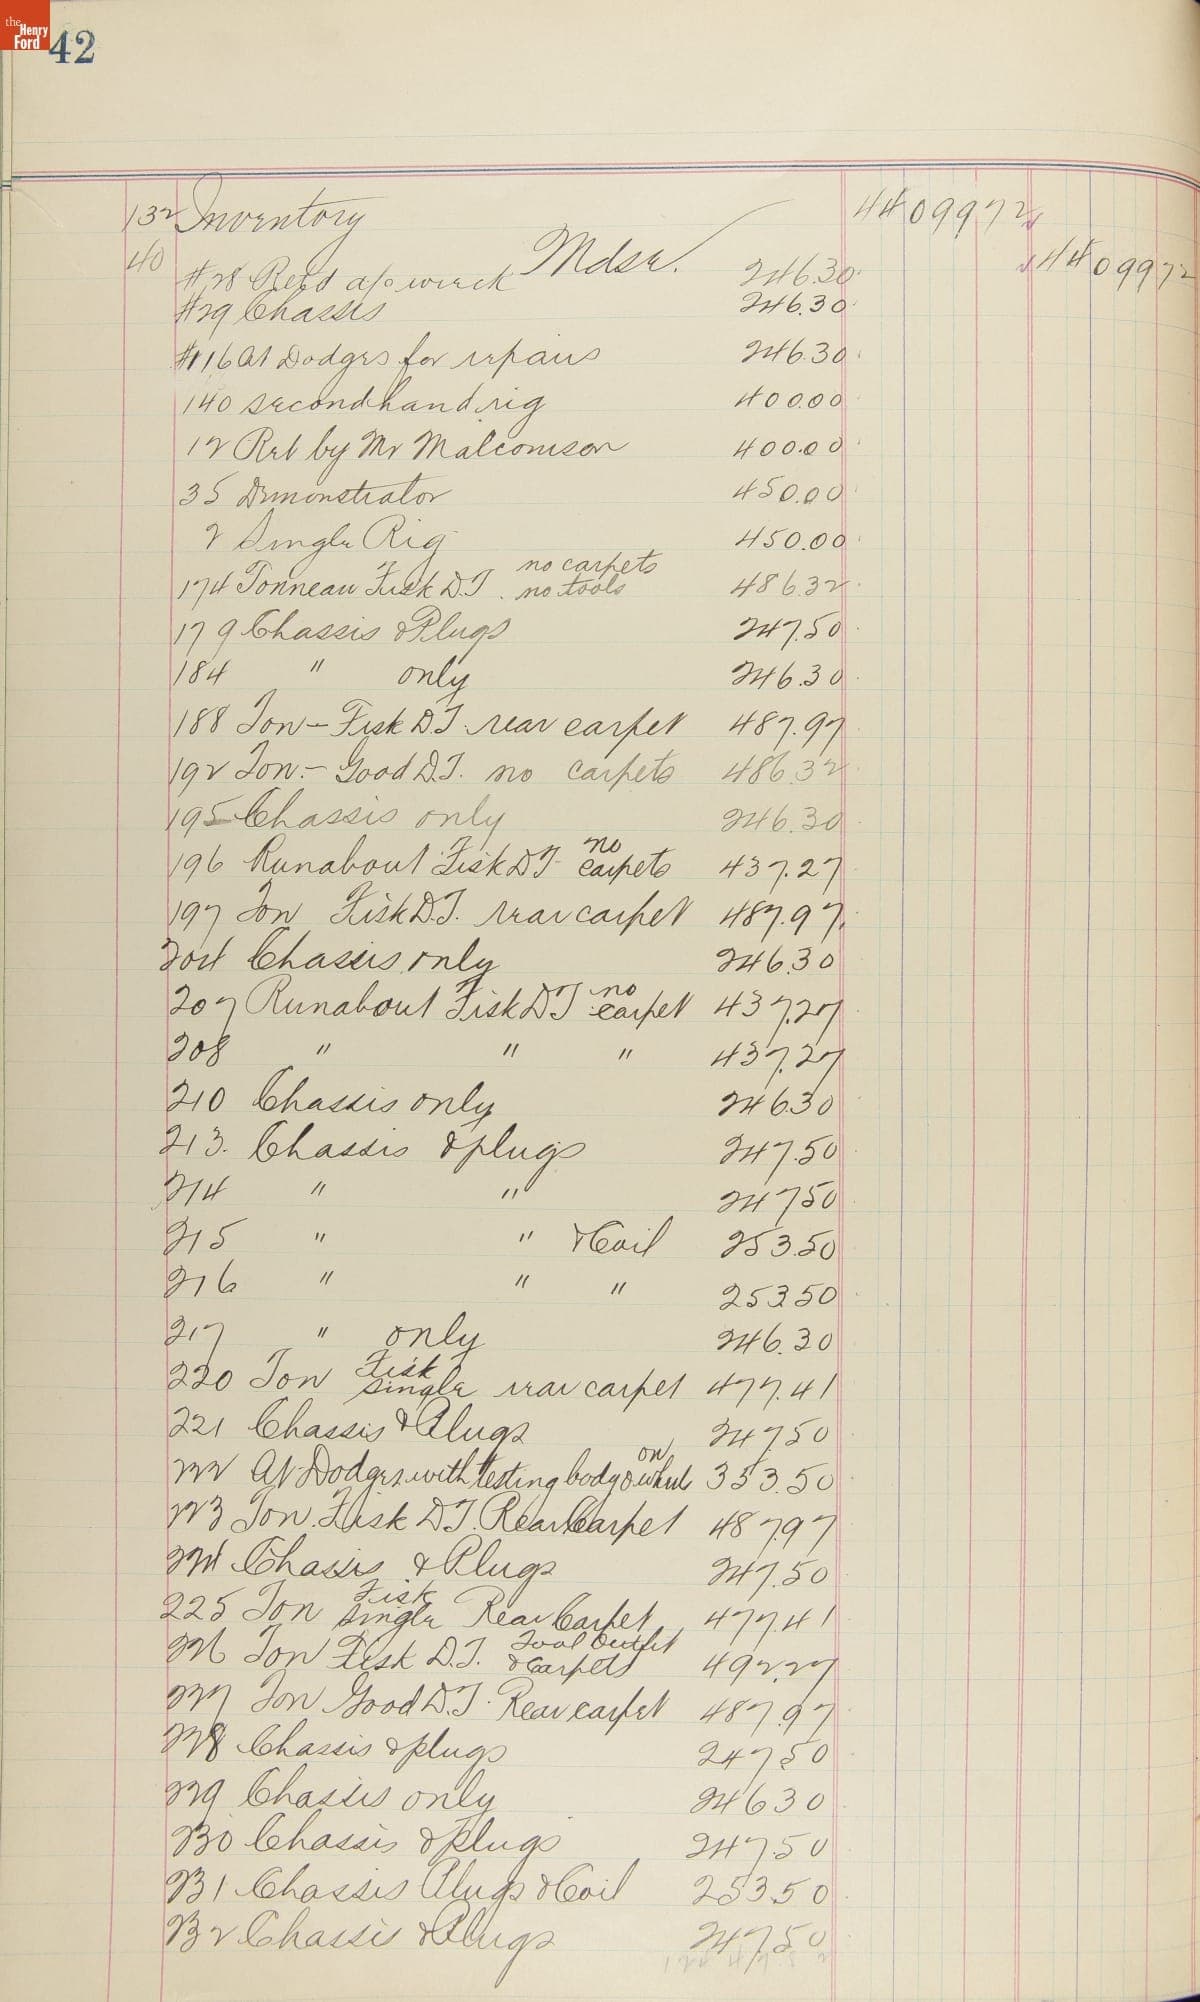 the Henry Ford
42
132 Inventory 44 099 72
40 Mdse. 44 099 72
#28 Retd a/c wreck 246.30
#29 Chassis 246.30
#116 At Dodges for repairs 246.30
140 secondhand rig 400.00
12 Ret by Mr Malcomson 400.00
35 Demonstrator 450.00
2 Single Rig 450.00
174 Tonneau Fisk D.T. no carpets no tools 486.32
179 Chassis & Plugs 247.50
184 " only 246.30
188 Ton- Fisk D.T. rear carpet 487.97
192 Ton.- Good D.T. no carpets 486.32
195 Chassis only 246.30
196 Runabout Fisk DT no carpets 437.27
197 Ton Fisk D.T. rear carpet 487.97
204 Chassis only 246.30
207 Runabout Fisk DT no carpet 437.27
208 " " " 437.27
210 Chassis only 246.30
213. Chassis & plugs 247.50
214 " " 247 50
215 " " & Coil 253.50
216 " " " 253 50
217 " only 246.30
220 Ton Fisk single rear carpet 477.41
221 Chassis & Plugs 247 50
222 At Dodges with testing body & on wheels 353.50
223 Ton. Fisk D.T. Rear Carpet 487 97
224 Chassis & Plugs 247.50
225 Ton Fisk single Rear Carpet 477.41
226 Ton Fisk D.T. Tool Outfit & Carpets 492.27
227 Ton Good D.T. Rear carpet 487.97
228 Chassis & plugs 247 50
229 Chassis only 246 30
230 Chassis & Plugs 247.50
231 Chassis Plugs & Coil 253.50
232 Chassis & Plugs 247.50